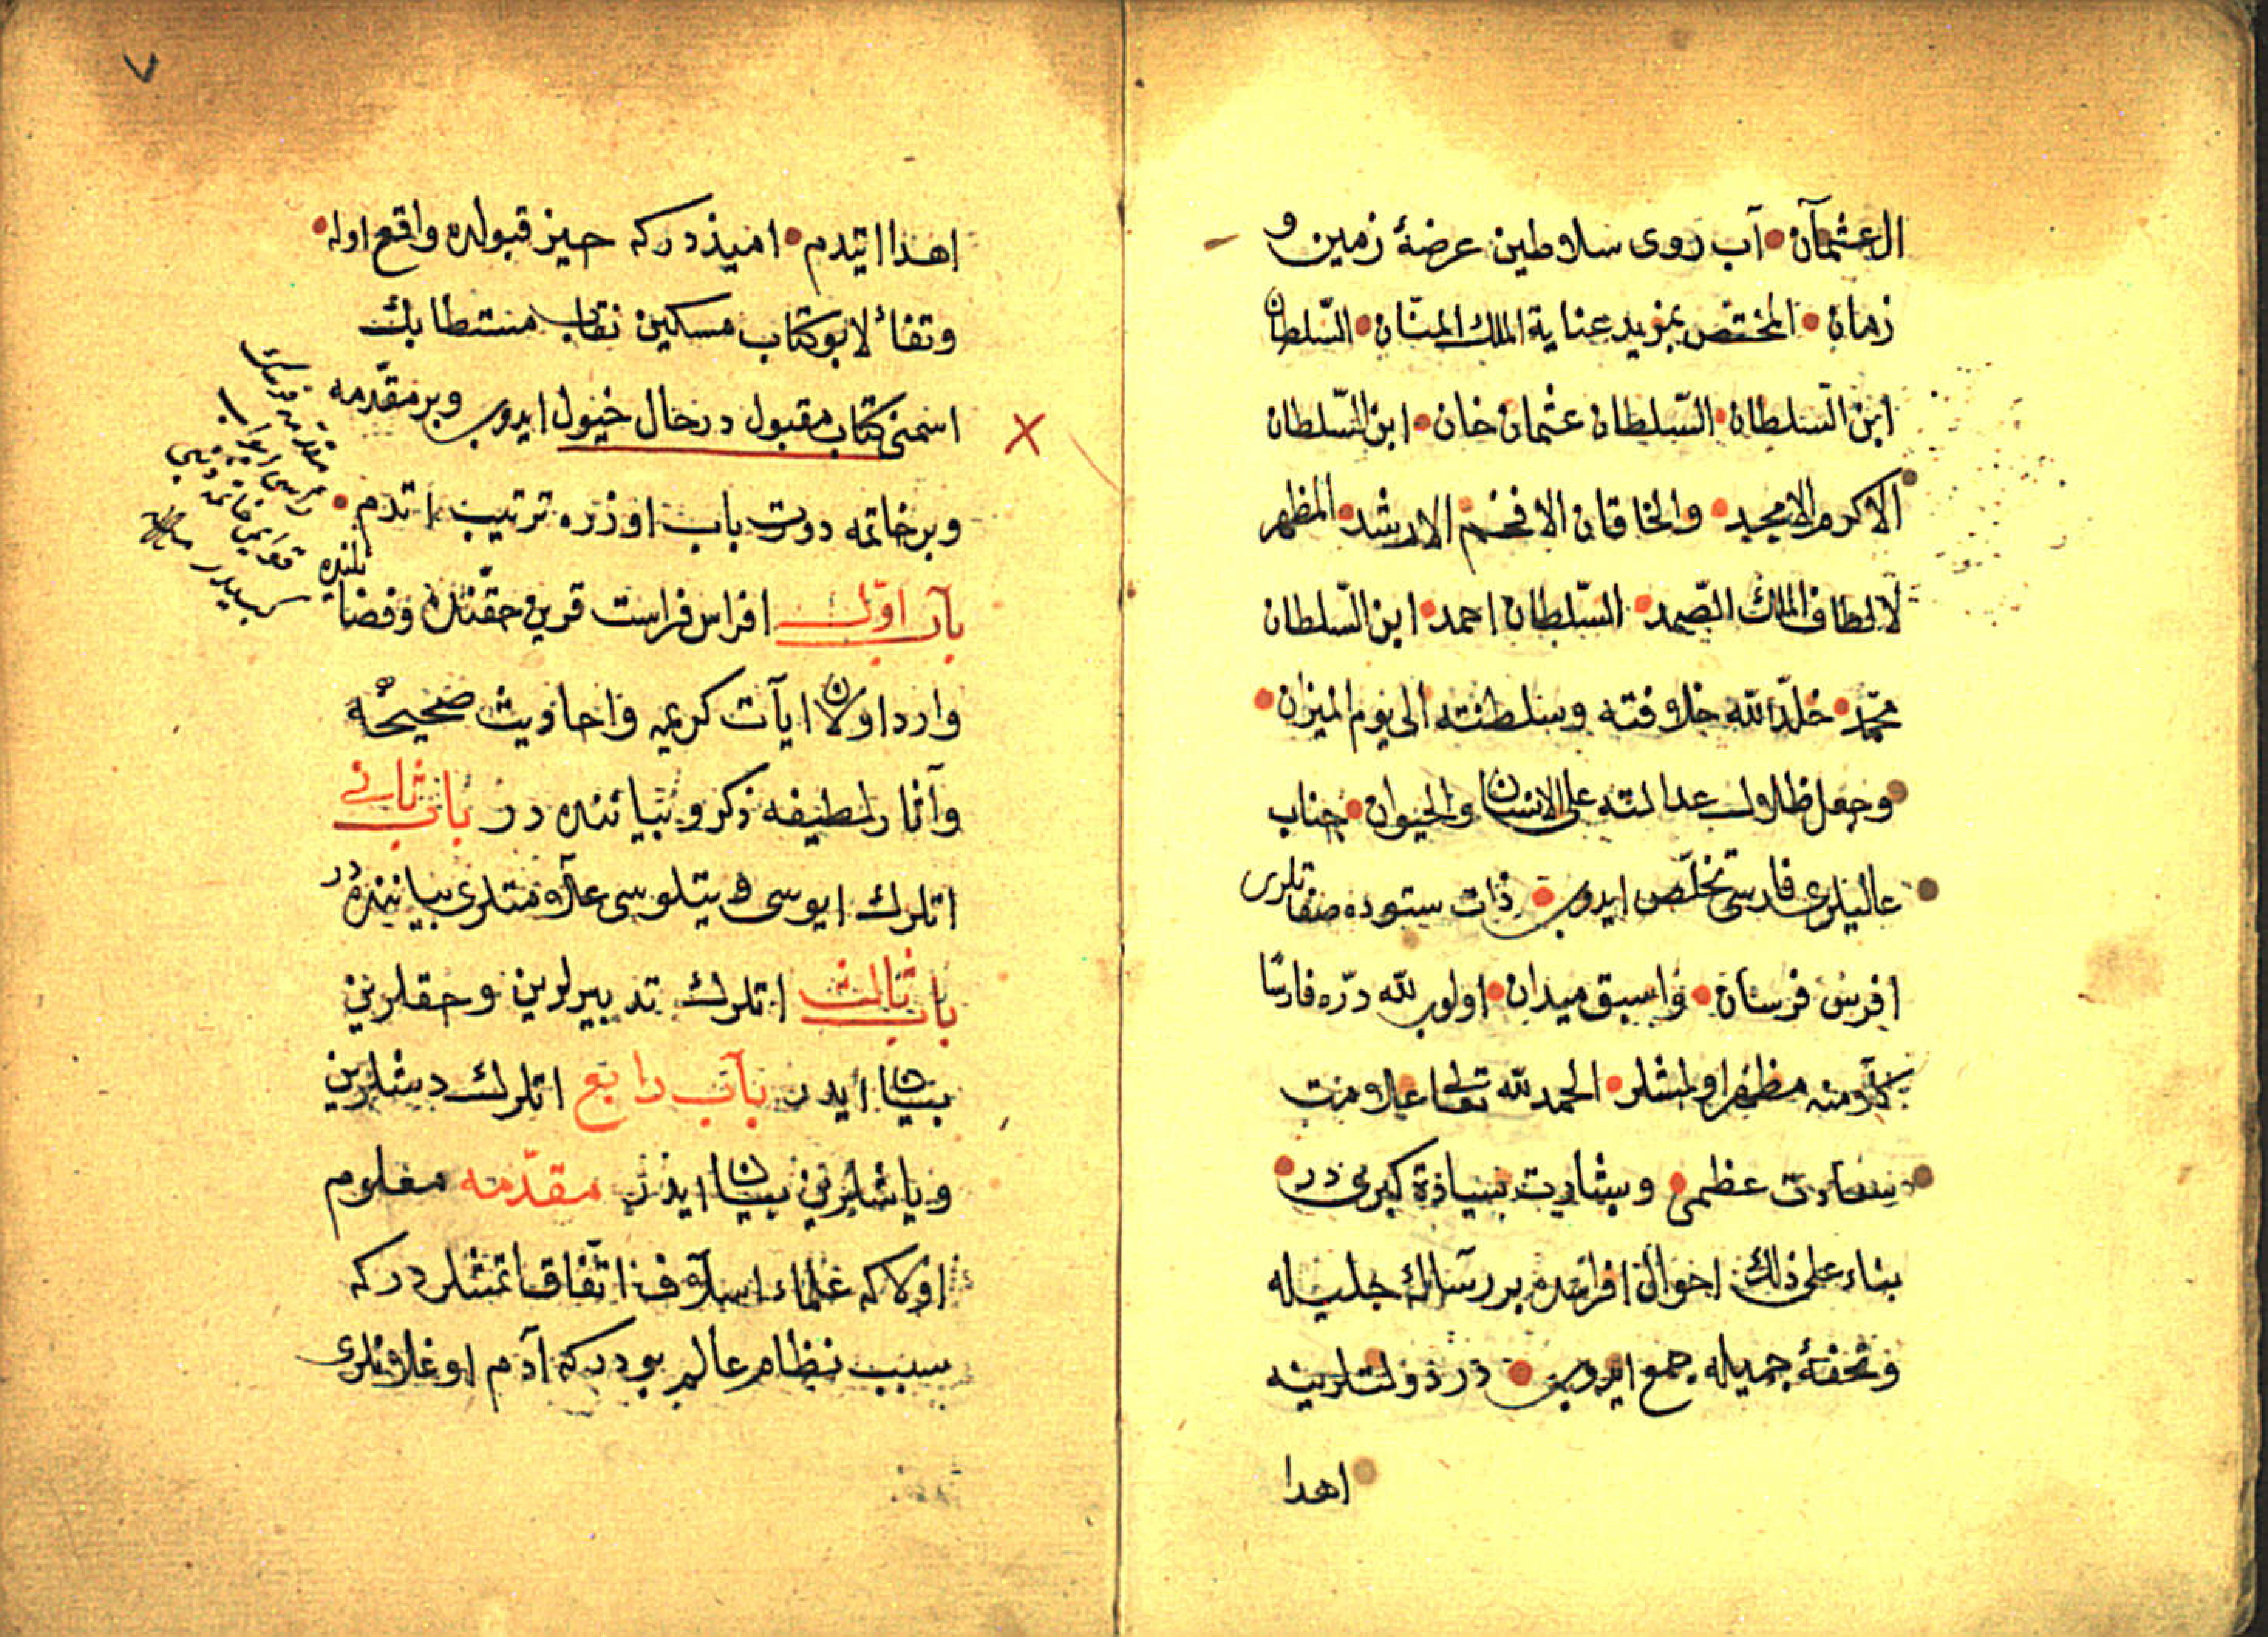 ال عثمان آب روی سلاطین عرضۀ زمین و
زمان المختص بمزید عنایة الملك المنّان السّلطان
ابن السّلطان السّلطان عثمان خان ابن السّلطان
الاكرم الامجد والخاقان الافخم الارشد المظهر
لالطاف الملك الصّمد السّلطان احمد ابن السّلطان
محمّد خلّد الله خلافته وسلطنته الی یوم المیزان
وجعل ظلال عدالته علی الانسان والحیوان جناب
عالیلری فارسی تخلّص ایدوب ذات ستوده صفاتلری
افرس فرسان واسبق میدان اولوب لله درّه فارسًا
كلامنه مظهر اولمشلر الحمد لله تعالی علامت
سعادت عظمی وبشارت سیادة كبری در
بناء علی ذلك احوال افراسده بر رسالۀ جلیله
وتحفۀ جمیله جمع ایدوب در دولتلرینه
اهدا
٧
اهدا ایتدم امیذدركه حیز قبولده واقع اوله
وتفاٴلا بو كتاب مسكین نقاب مستطابك
اسمنی كتاب مقبول در حال خیول ایدوب وبر مقدّمه
وبر خاتمه دورت باب اوزره ترتیب اتدم
باب اوّل افراس فراست قرین حقّنده وفضا
ئلنده
وارد اولان ایآت كریمه واحادیث صحیحه
وآثار لطیفه ذكر وبیاننده در باب ثانی
اتلرك ایوسی ویتلوسی علامتلری بیاننده در
باب ثالث اتلرك تدبیرلرین وحقلرینی
بیان ایدر باب رابع اتلرك دیشلرین
ویاشلرینی بیان ایدر مقدّمه معلوم
اولا كه علماء اسلاف اتّفاق اتمشلردركه
سبب نظام عالم بودركه آدم اوغلانلری